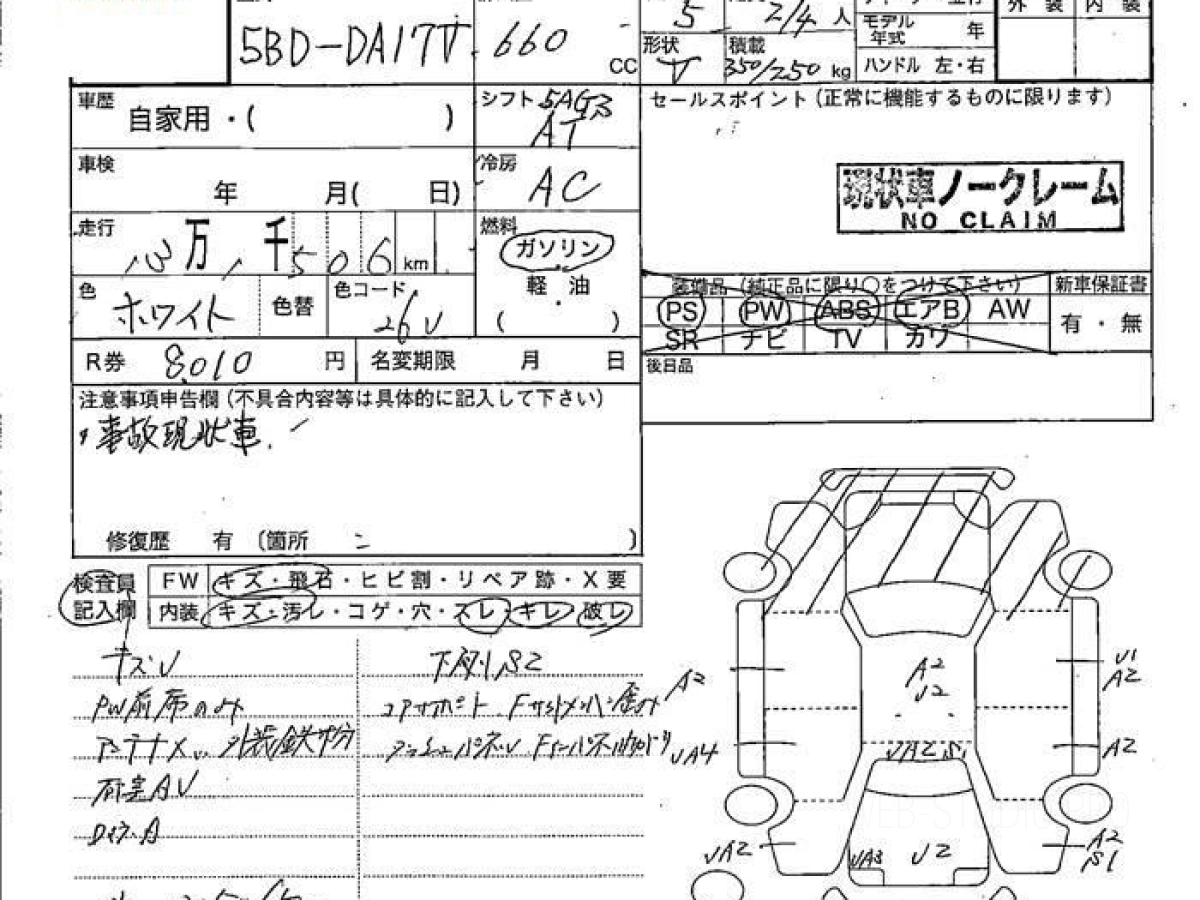 5BD-DA17V 660 CC
5 2/4 人
形状 V 積載 350/250 kg
モデル年式 年
ハンドル 左・右
外装 内装
車歴 自家用・( )
シフト 5AGS AT
セールスポイント(正常に機能するものに限ります)
車検 年 月( 日)
冷房 AC
現状車ノークレーム
NO CLAIM
走行 13万1千506km
燃料 ガソリン
軽・油
( )
色 ホワイト 色替 色コード 26V
装備品(純正品に限り○をつけて下さい) 新車保証書
PS PW ABS エアB AW 有・無
SR ナビ TV カワ
R券 8,010 円 名変期限 月 日
後日品
注意事項申告欄(不具合内容等は具体的に記入して下さい)
事故現状車
修復歴 有 (箇所 )
検査員記入欄
FW キズ・飛石・ヒビ割・リペア跡・X要
内装 キズ・汚レ・コゲ・穴・スレ・キレ・破レ
下廻りS2
PW前席のみ
コアサポート
外装鉄粉
荷室AV
A2
U2
A2
U1
A2
UA4
UA2 S1
A2
UA2
UA3
U2
A2
S1